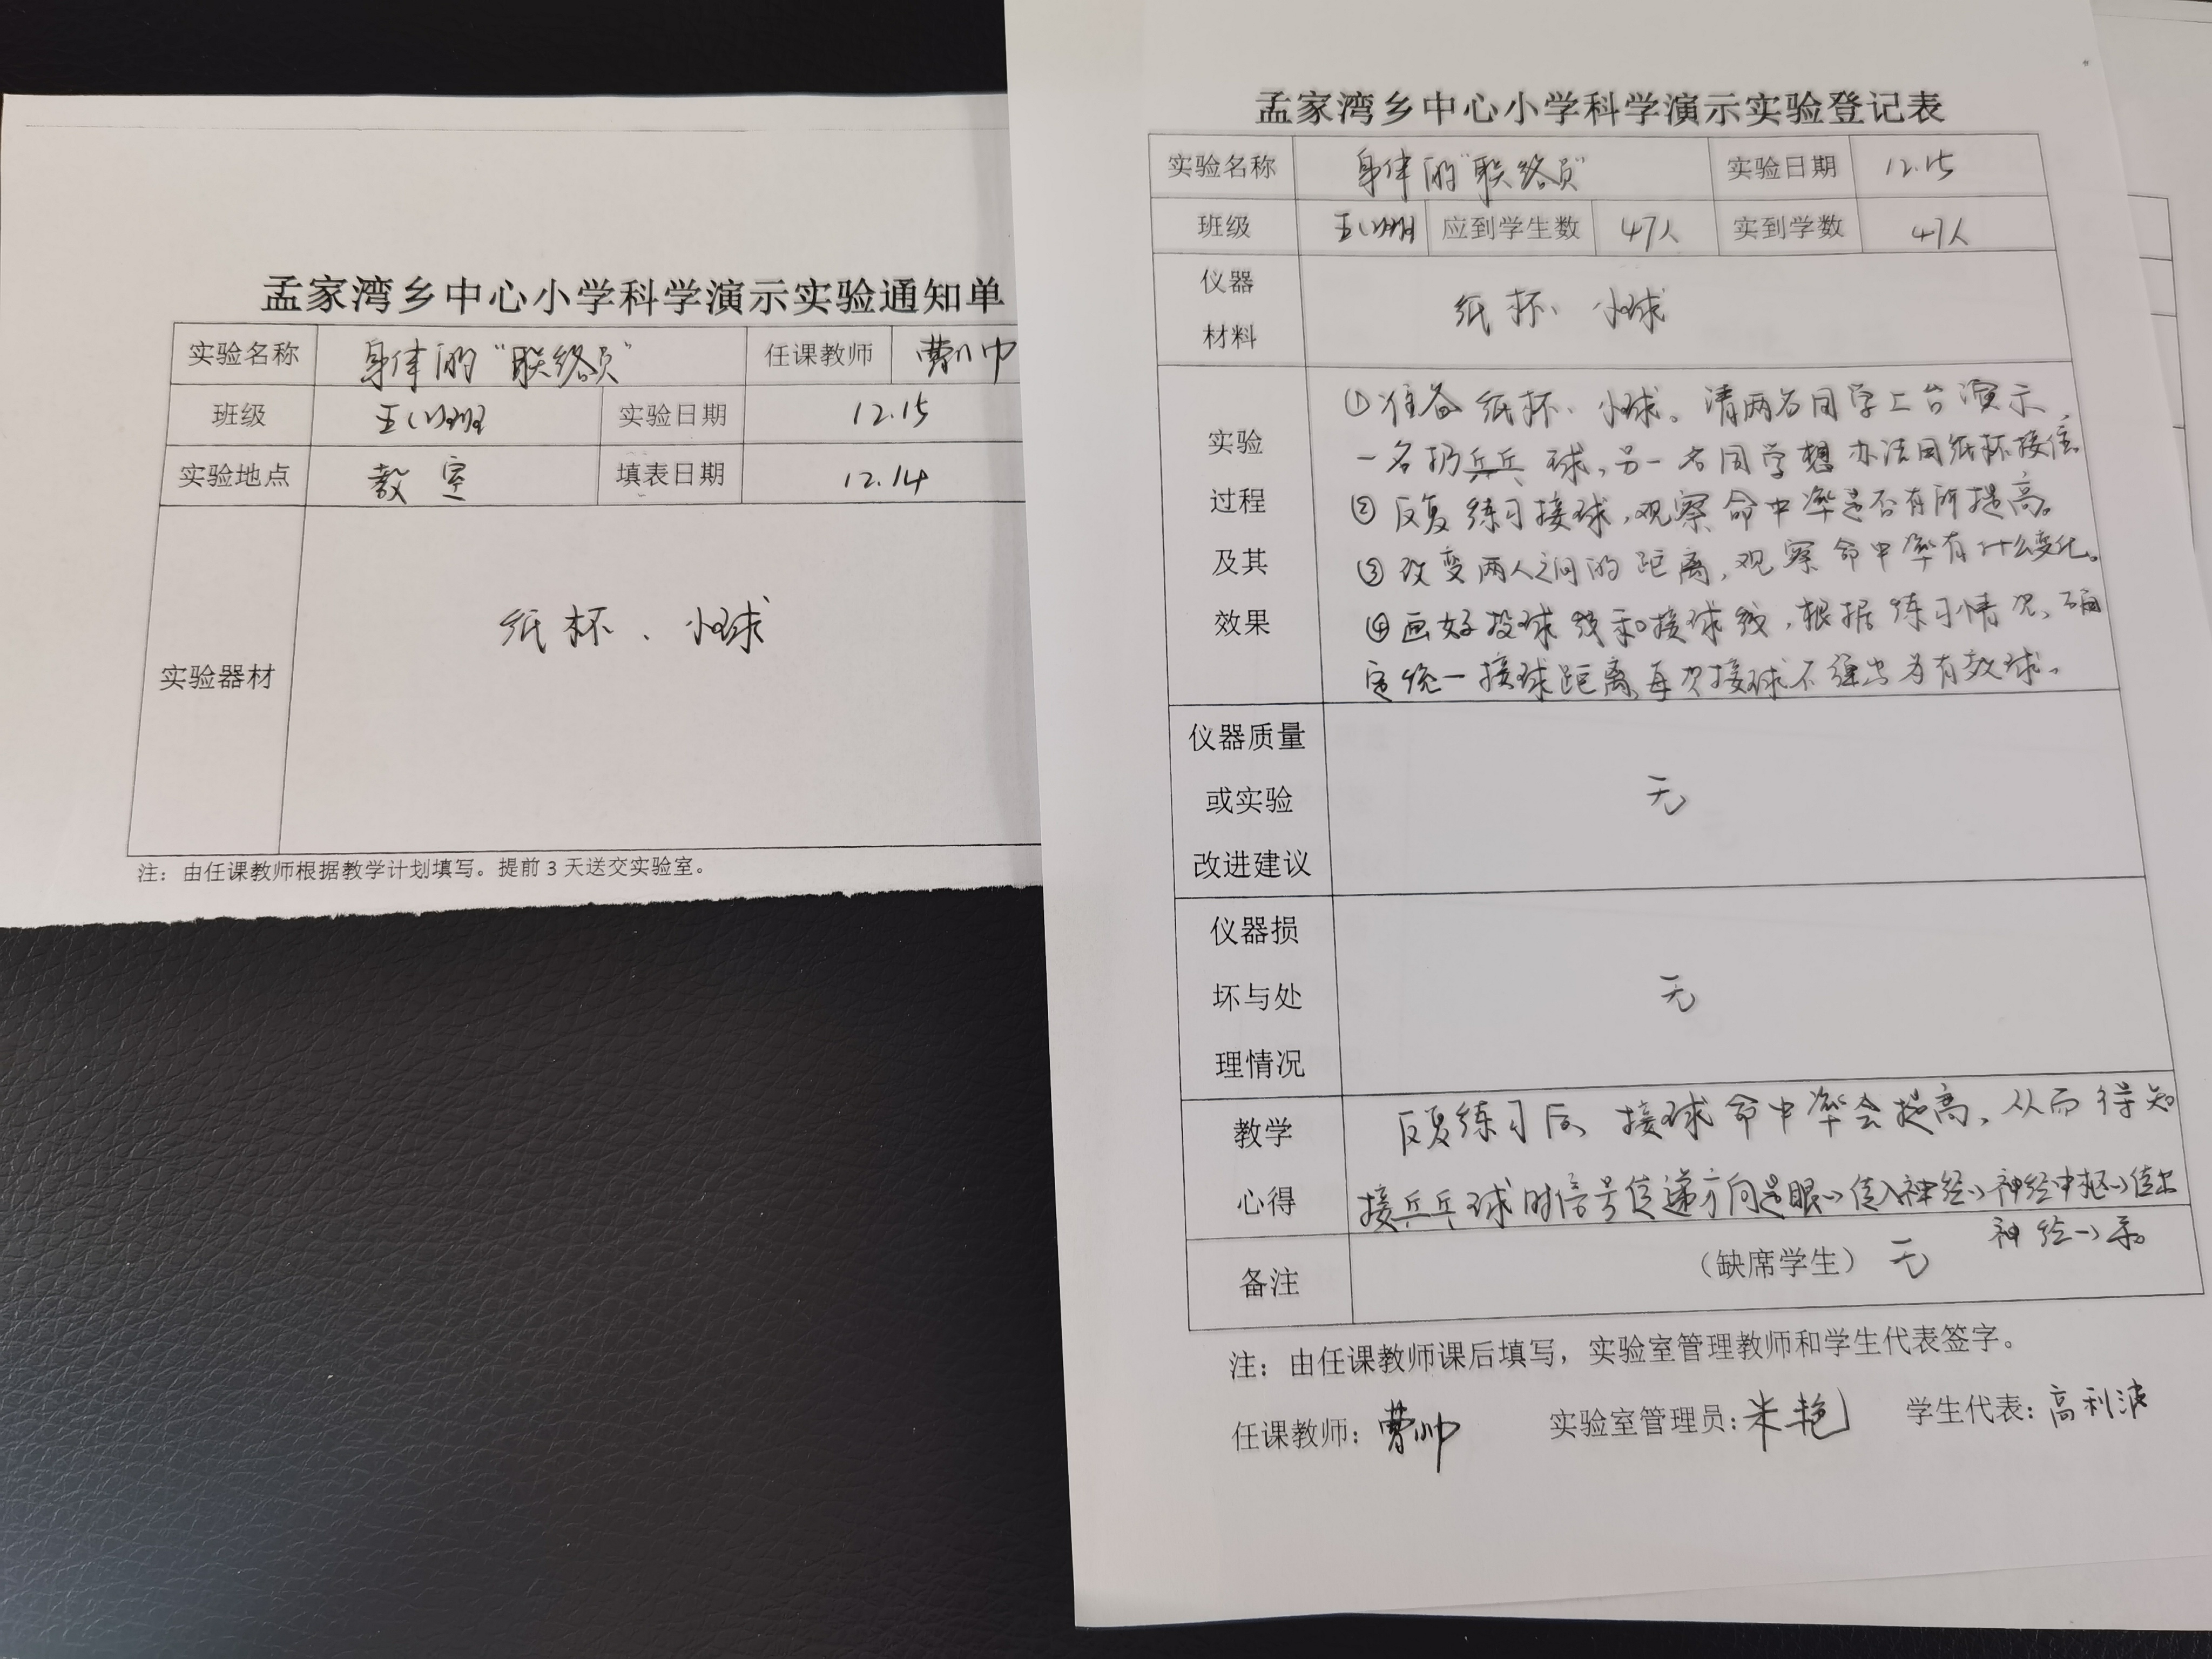 孟家湾乡中心小学科学演示实验通知单
实验名称 身体的“联络员” 任课教师 曹帅
班级 五(1)班 实验日期 12.15
实验地点 教室 填表日期 12.14
实验器材 纸杯、小球
注：由任课教师根据教学计划填写。提前3天送交实验室。
孟家湾乡中心小学科学演示实验登记表
实验名称 身体的“联络员” 实验日期 12.15
班级 五(1)班 应到学生数 47人 实到学数 47人
仪器
材料
纸杯、小球
实验
过程
及其
效果
①准备纸杯、小球。请两名同学上台演示，
一名扔乒乓球，另一名同学想办法用纸杯接住。
②反复练习接球，观察命中率是否有所提高。
③改变两人之间的距离，观察命中率有什么变化。
④画好投球线和接球线，根据练习情况，确
定统一接球距离，每次接球不弹出为有效球。
仪器质量
或实验
改进建议
无
仪器损
坏与处
理情况
无
教学
心得
反复练习后，接球命中率会提高，从而得知
接乒乓球时信号传递方向是眼→传入神经→神经中枢→传出
神经→手。
备注 （缺席学生）无
注：由任课教师课后填写，实验室管理教师和学生代表签字。
任课教师：曹帅 实验室管理员：米艳 学生代表：高利波